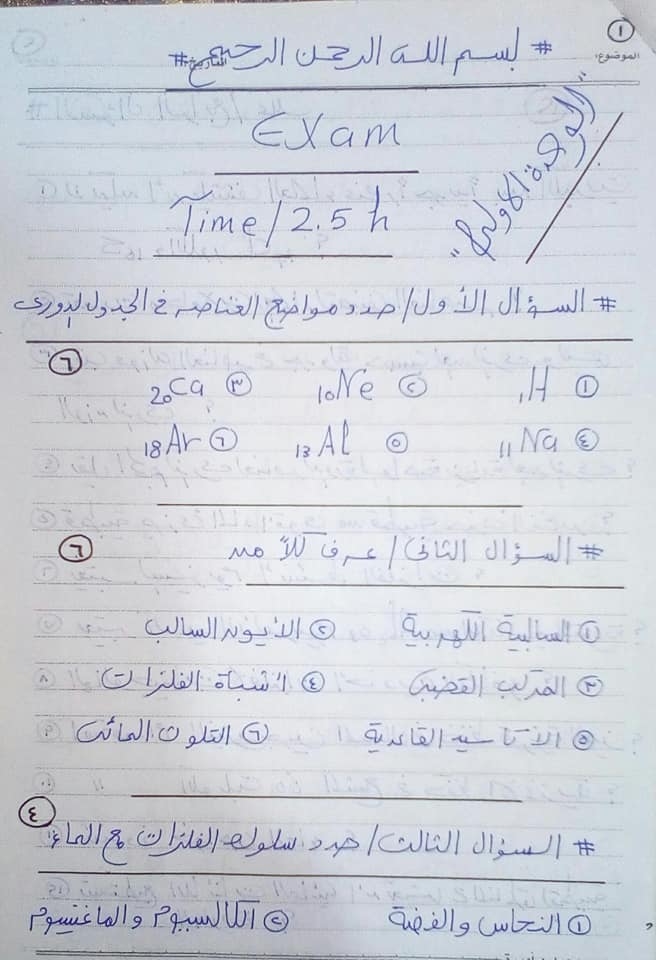 ١
الموضوع:
# بسم الله الرحمن الرحيم #
التاريخ:
Exam
"الوحدة الأولى"
Time / 2.5 h
# السؤال الأول / حدد مواضع العناصر في الجدول الدورى
٦
١ ₁H ٢ ₁₀Ne ٣ ₂₀Ca
٤ ₁₁Na ٥ ₁₃Al ٦ ₁₈Ar
# السؤال الثانى / عرف كلاً من
٦
١ السالبية الكهربية ٢ الأيون السالب
٣ المركب القطبى ٤ اشباة الفلزات
٥ الأكاسيد القاعدية ٦ التلوث المائى
٤
# السؤال الثالث / حدد سلوك الفلزات مع الماء
١ النحاس والفضة ٢ الكالسيوم والماغنسيوم